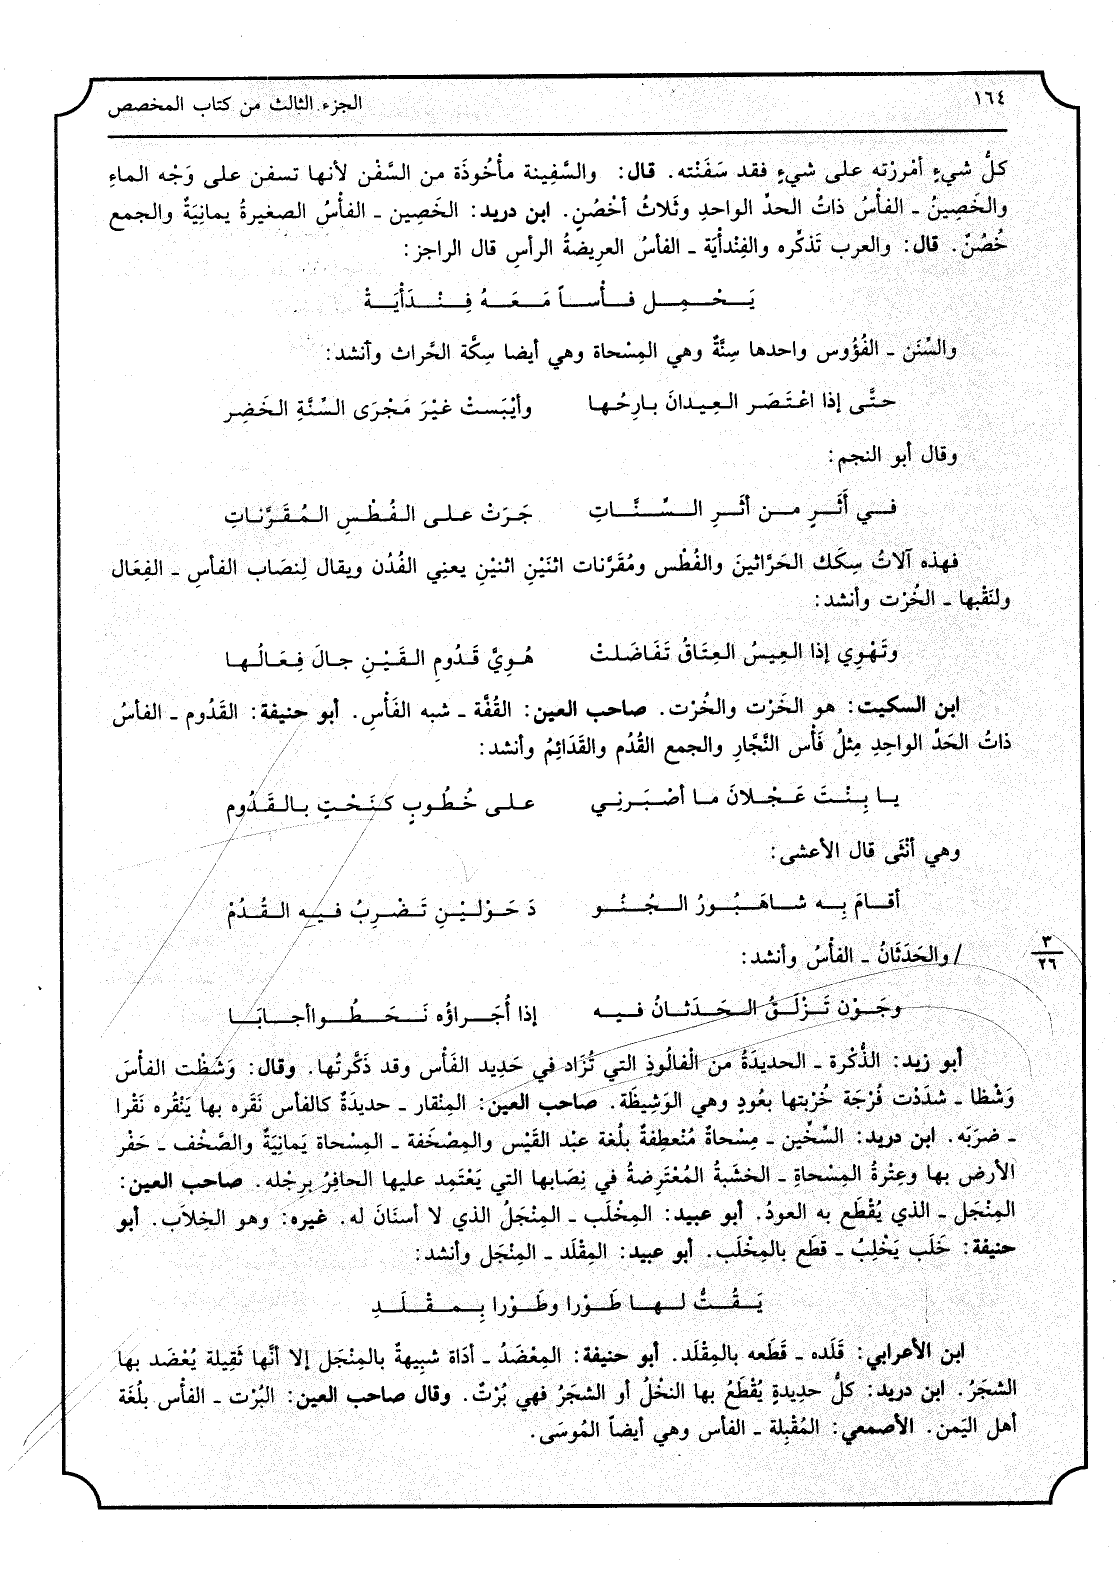 ١٦٤ الجزء الثالث من كتاب المخصص
كلُّ شيءٍ أمْررْته على شيءٍ فقد سَفَنْته. قال: والسَّفِينة مأْخُوذَة من السَّفْن لأنها تسفن على وَجْه الماءِ
والخَصِينُ ـ الفأسُ ذاتُ الحدِّ الواحدِ وثَلاثُ أخْصُنٍ. ابن دريد: الخَصِين ـ الفأْسُ الصغيرةُ يمانِيَةٌ والجمع
خُصُنٌ. قال: والعرب تَذكِّره والفِنْدأْيَة ـ الفأسُ العرِيضةُ الرأسِ قال الراجز:
يَـحْمِل فأْساً مَعَهُ فِنْدَأْيَةْ
والسِّنَن ـ الفُؤُوس واحدها سِنَّةٌ وهي المِسْحاة وهي أيضا سِكَّة الحَّراث وأنشد:
حتَّى إذا اعْتَصَر العِيدانَ بارِحُها وأيْبَستْ غيْرَ مَجْرَى السِّنَّةِ الخَضِر
وقال أبو النجم:
في أَثَرٍ من أثَرِ السِّنَّاتِ جَرَتْ على الفُطْسِ المُقَرَّناتِ
فهذه آلاتُ سِكَك الحَرَّاثينَ والفُطْس ومُقَرَّنات اثنَيْنِ اثنيْنِ يعنِي الفُدُن ويقال لِنصَاب الفأسِ ـ الفِعَال
ولنَقْبها ـ الخُرْت وأنشد:
وتَهْوِي إذا العِيسُ العِتَاقُ تَفَاضَلتْ هُوِيَّ قَدُومِ القَيْنِ جالَ فِعَالُها
ابن السكيت: هو الخَرْت والخُرْت. صاحب العين: القُفَّة ـ شبه الفَأْسِ. أبو حنيفة: القَدُوم ـ الفأسُ
ذاتُ الحَدِّ الواحِدِ مِثلُ فَأْس النَّجَّارِ والجمع القُدُم والقَدَائِمُ وأنشد:
يا بِنْتَ عَجْلانَ ما أصْبَرنِي على خُطُوبٍ كنَحْتٍ بالقَدُوم
وهي أنْثَى قال الأعشى:
أقامَ بِه شاهَبُورُ الجُنُو دَ حَوْليْنِ تَضْرِبُ فيه القُدُمْ
٣
٢٦
/ والحَدَثَانُ ـ الفأْسُ وأنشد:
وجَوْن تَزْلَقُ الحَدَثانُ فيه إذا أُجَراؤُه نَحَطُوا أجابَا
أبو زيد: الذُّكْرة ـ الحديدَةُ من الْفالُوذِ التي تُزَاد في حَدِيد الفَأْس وقد ذَكَّرتُها. وقال: وَشَظْت الفأسَ
وَشْظا ـ شدَدْت فُرْجَة خُرْبتها بعُودٍ وهي الوَشِيظَة. صاحب العين: المِنْقار ـ حديدَةٌ كالفأس نَقَره بها يَنْقُره نَقْرا
ـ ضرَبَه. ابن دريد: السِّخِّين ـ مِسْحاةٌ مُنْعطِفةٌ بلُغة عبْد القَيْس والمِصْخَفة ـ المِسْحاة يَمانِيَةٌ والصَّخْف ـ حَفْر
الأرض بها وعِتْرةُ المِسْحاةِ ـ الخشَبةُ المُعْتَرِضةُ في نِصَابها التي يَعْتَمِد عليها الحافِرُ بِرِجْله. صاحب العين:
المِنْجَل ـ الذي يُقْطَع به العودُ. أبو عبيد: المِخْلَب ـ المِنْجَلُ الذي لا أسنَانَ له. غيره: وهو الخِلاَب. أبو
حنيفة: خَلَب يَخْلِبُ ـ قطَع بالمِخْلَب. أبو عبيد: المِقْلَد ـ المِنْجَل وأنشد:
يَقُتُّ لها طَوْرا وطَوْرا بِمِقْلَدِ
ابن الأعرابي: قَلَده ـ قَطَعه بالمِقْلَد. أبو حنيفة: المِعْضَدُ ـ أدَاة شبِيهةٌ بالمِنْجَل إلا أنَّها ثَقِيلة يُعْضَد بها
الشجَرُ. ابن دريد: كلُّ حدِيدةٍ يُقْطَعُ بها النخْلُ أو الشجَرُ فهي بُرْتٌ. وقال صاحب العين: البُرْت ـ الفَأْس بلُغَة
أهل اليَمن. الأصمعي: المُقْبِلة ـ الفأس وهي أيضاً المُوسَى.